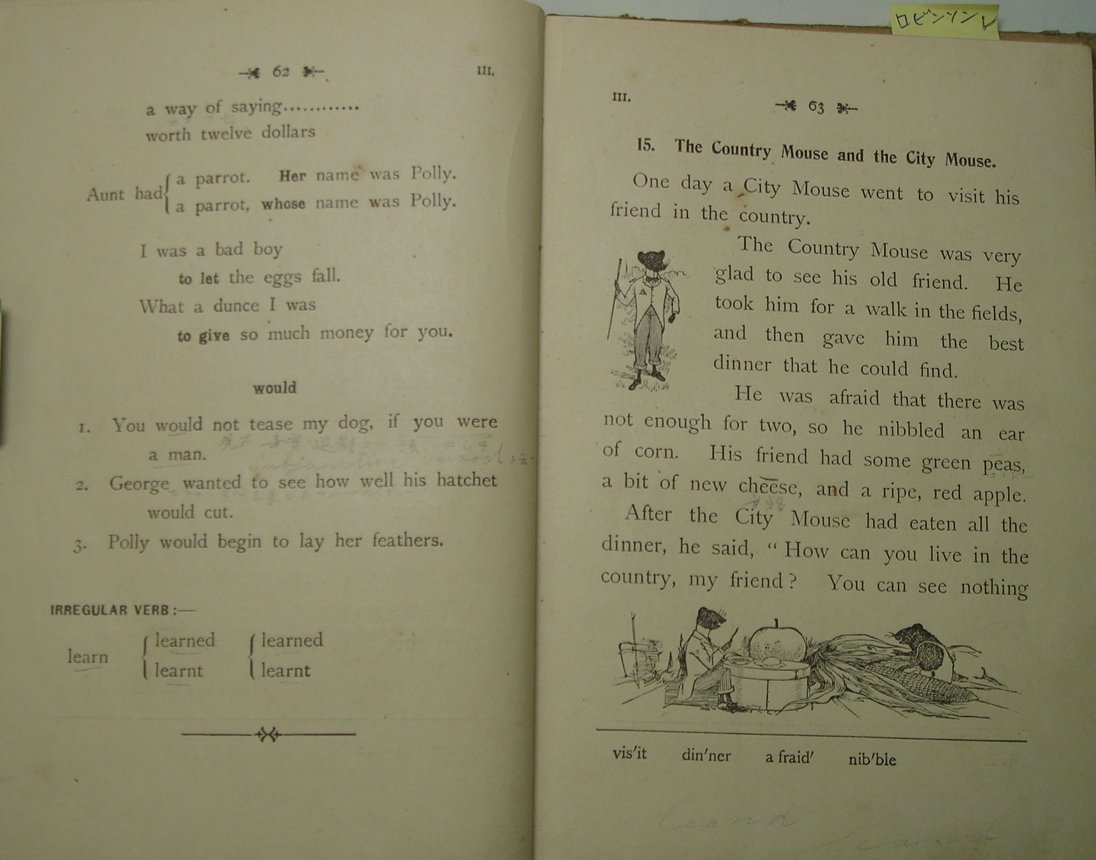 62 III.
a way of saying............
worth twelve dollars
Aunt had { a parrot. Her name was Polly.
{ a parrot, whose name was Polly.
I was a bad boy
to let the eggs fall.
What a dunce I was
to give so much money for you.
would
1. You would not tease my dog, if you were
a man.
2. George wanted to see how well his hatchet
would cut.
3. Polly would begin to lay her feathers.
IRREGULAR VERB:—
learn { learned { learned
{ learnt { learnt
ロビンソント
III. 63
15. The Country Mouse and the City Mouse.
One day a City Mouse went to visit his
friend in the country.
The Country Mouse was very
glad to see his old friend. He
took him for a walk in the fields,
and then gave him the best
dinner that he could find.
He was afraid that there was
not enough for two, so he nibbled an ear
of corn. His friend had some green peas,
a bit of new cheese, and a ripe, red apple.
After the City Mouse had eaten all the
dinner, he said, “How can you live in the
country, my friend? You can see nothing
vis′it din′ner a fraid′ nib′ble